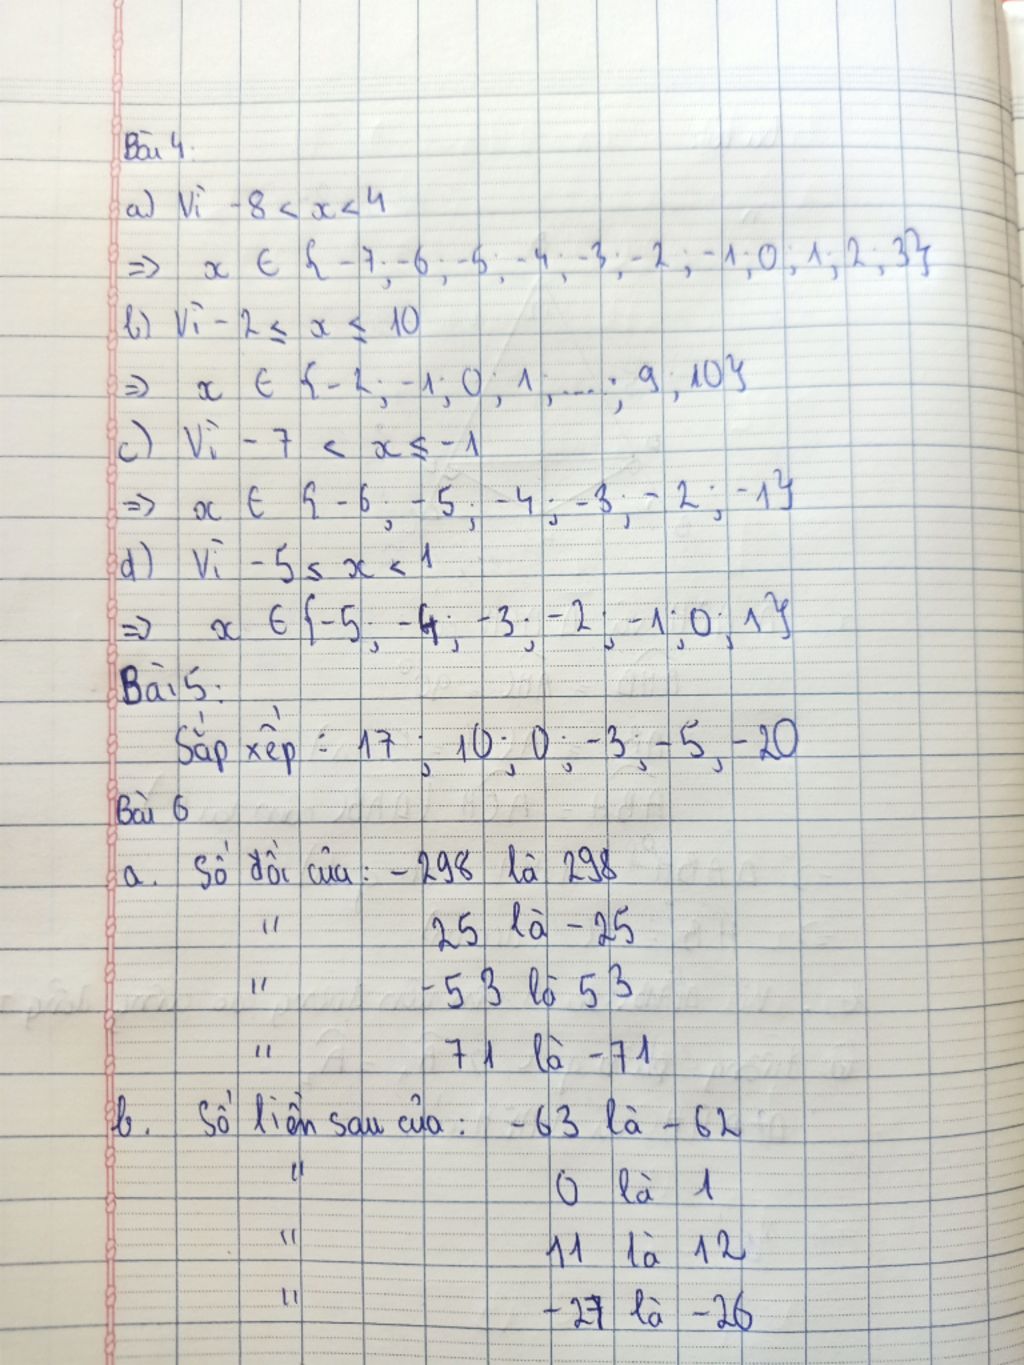 Bài 4:
a) Vì -8 < x < 4
=> x ∈ { -7; -6; -5; -4; -3; -2; -1; 0; 1; 2; 3}
b) Vì -2 ≤ x ≤ 10
=> x ∈ {-2; -1; 0; 1; ....; 9; 10}
c) Vì -7 < x ≤ -1
=> x ∈ {-6; -5; -4; -3; -2; -1}
d) Vì -5 ≤ x < 1
=> x ∈ {-5; -4; -3; -2; -1; 0; 1}
Bài 5:
Sắp xếp: 17; 10; 0; -3; -5, -20
Bài 6
a. Số đối của: -298 là 298
" 25 là -25
" -53 là 53
" 71 là -71
b. Số liền sau của: -63 là -62
" 0 là 1
" 11 là 12
" -27 là -26